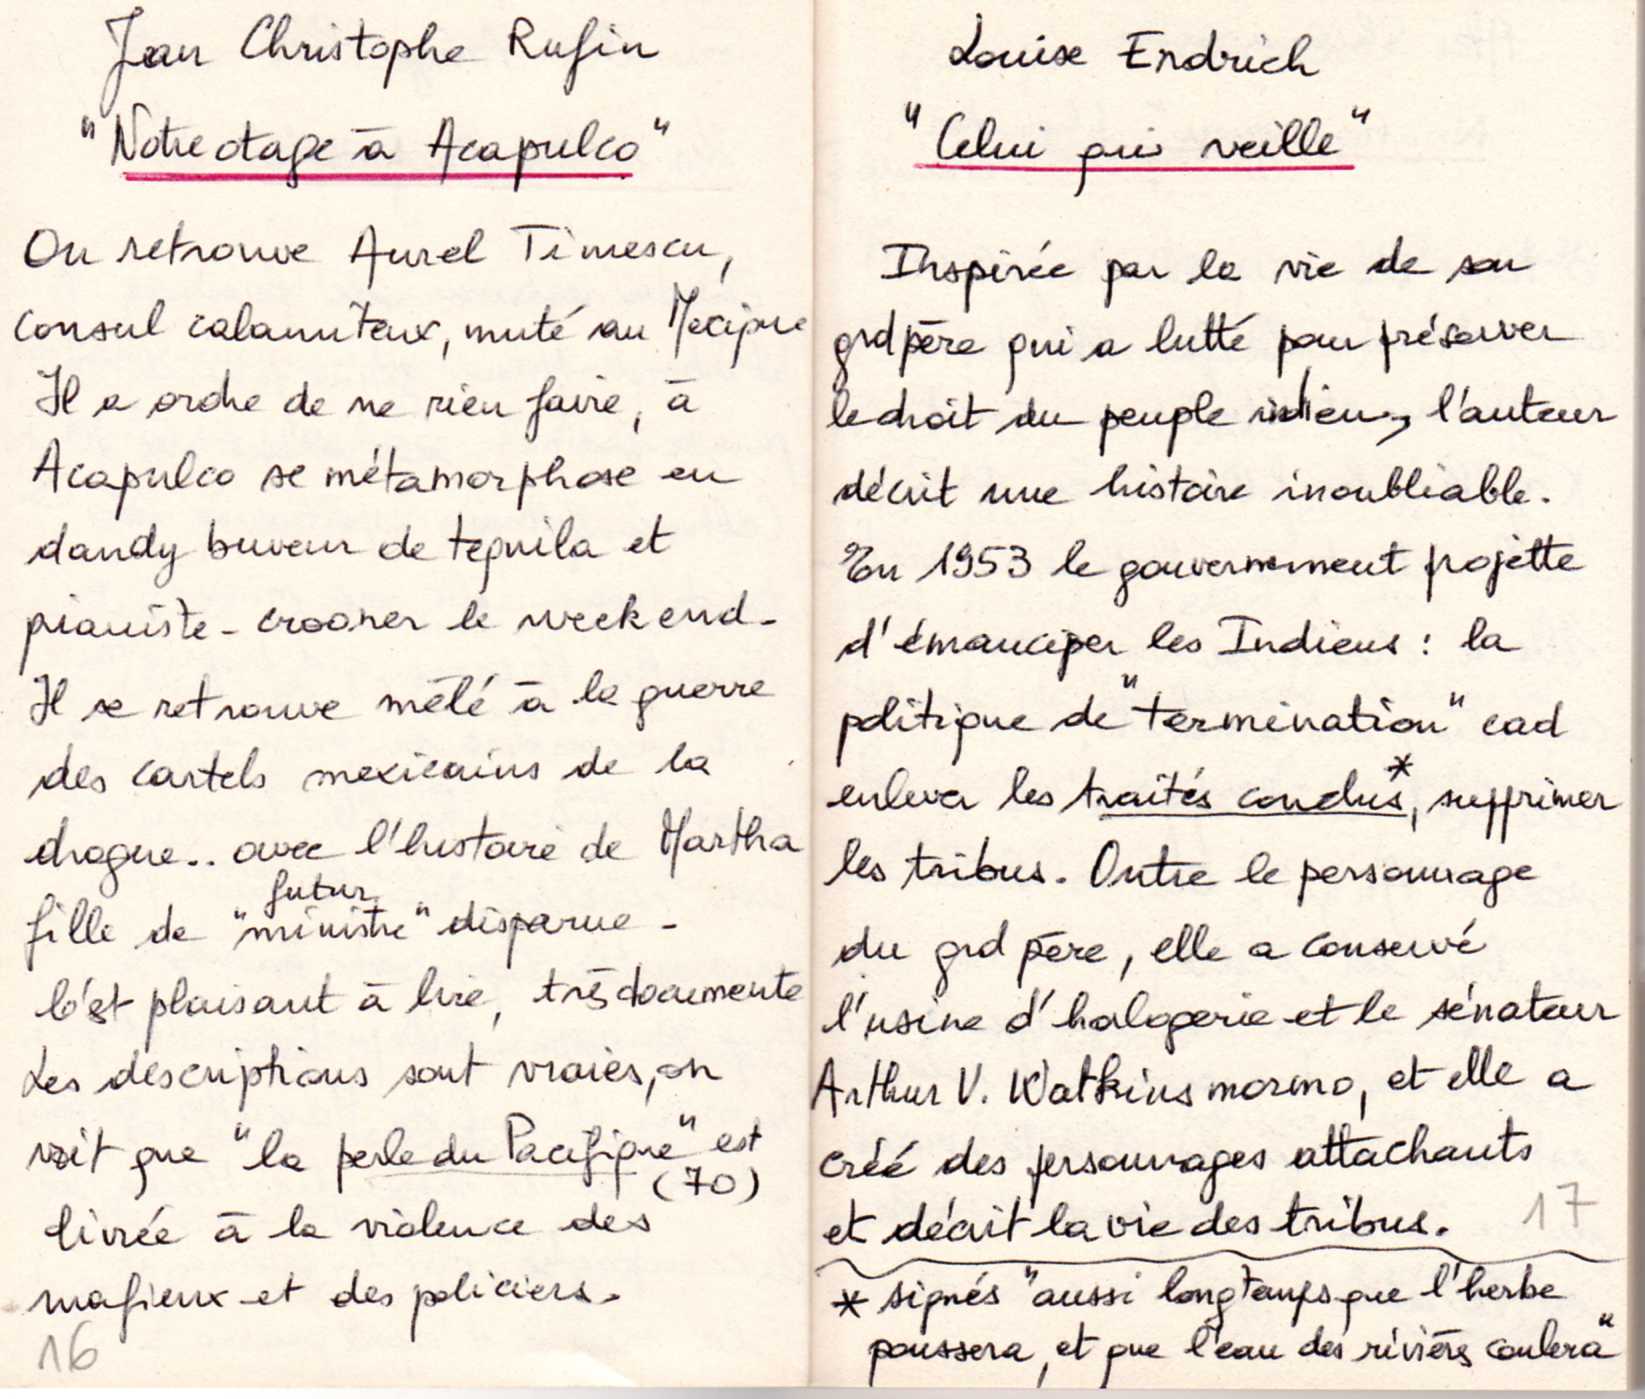 Jean Christophe Rufin
"Notre otage à Acapulco"
On retrouve Aurel Timescu,
consul calamiteux, muté au Mexique
Il a ordre de ne rien faire, à
Acapulco se métamorphose en
dandy buveur de tequila et
pianiste - crooner le week end -
Il se retrouve mêlé à la guerre
des cartels mexicains de la
drogue.. avec l'histoire de Martha
futur
fille de "ministre" disparue -
C'est plaisant à lire, très documente
Les descriptions sont vraies, on
voit que "la perle du Pacifique" est
(70)
livrée à la violence des
mafieux et des policiers.
16
Louise Erdrich
"Celui qui veille"
Inspirée par la vie de son
grd père qui a lutté pour préserver
le droit du peuple indien, l'auteur
décrit une histoire inoubliable.
En 1953 le gouvernement projette
d'émanciper les Indiens : la
politique de "termination" cad
enlever les traités conclus*, supprimer
les tribus. Outre le personnage
du grd père, elle a conservé
l'usine d'horlogerie et le sénateur
Arthur V. Watkins mormo, et elle a
créé des personnages attachants
et décrit la vie des tribus.
17
* signés "aussi longtemps que l'herbe
poussera, et que l'eau des rivières coulera"